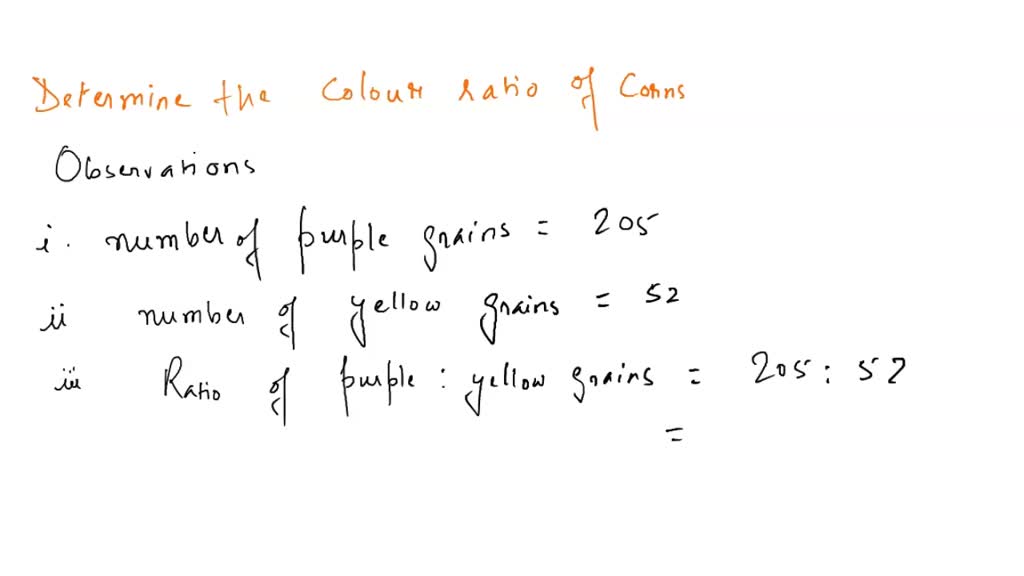 Determine the Colour ratio of Corns
Observations
i. number of purple grains = 205
ii number of yellow grains = 52
iii Ratio of purple : yellow grains = 205 : 52
=